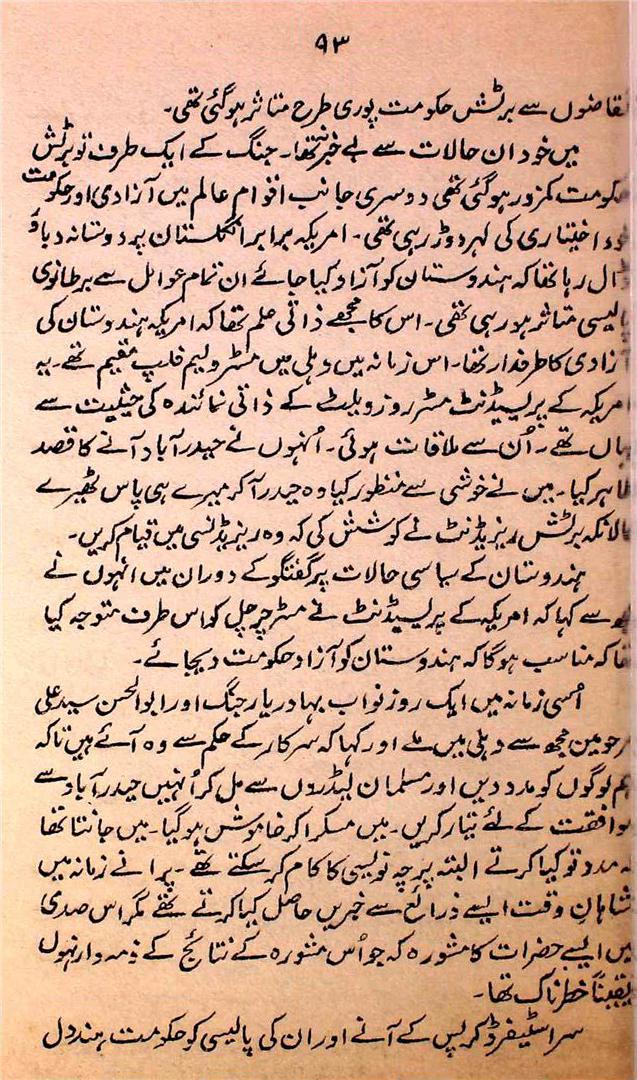 ۹۳
تقاضوں سے برٹش حکومت پوری طرح متاثر ہوگئی تھی۔
میں خود ان حالات سے بے خبر نہ تھا۔ جنگ کے ایک طرف تو برٹش
حکومت کمزور ہوگئی تھی دوسری جانب اقوام عالم میں آزادی اور حکومت
خود اختیاری کی لہر دوڑ رہی تھی۔ امریکہ برابر انگلستان پر دوستانہ دباؤ
ڈال رہا تھا کہ ہندوستان کو آزاد کیا جائے ان تمام عوامل سے برطانوی
پالیسی متاثر ہو رہی تھی۔ اس کا مجھے ذاتی علم تھا کہ امریکہ ہندوستان کی
آزادی کا طرفدار تھا۔ اس زمانہ میں دہلی میں مسٹر ولیم فلپ مقیم تھے۔ یہ
امریکہ کے پریسیڈنٹ مسٹر روزویلٹ کے ذاتی نمائندہ کی حیثیت سے
یہاں تھے۔ اُن سے ملاقات ہوئی۔ اُنہوں نے حیدرآباد آنے کا قصد
ظاہر کیا۔ میں نے خوشی سے منظور کیا وہ حیدرآ کر میرے ہی پاس ٹھیرے
حالانکہ برٹش ریزیڈنٹ نے کوشش کی کہ وہ ریزیڈنسی میں قیام کریں۔
ہندوستان کے سیاسی حالات پر گفتگو کے دوران میں انہوں نے
مجھ سے کہا کہ امریکہ کے پریسیڈنٹ نے مسٹر چرچل کو اس طرف متوجہ کیا
تھا کہ مناسب ہوگا کہ ہندوستان کو آزاد حکومت دیجائے۔
اُسی زمانہ میں ایک روز نواب بہادر یار جنگ اور ابوالحسن سید علی
مرحومین مجھ سے دہلی میں ملے اور کہا کہ سرکار کے حکم سے وہ آئے ہیں تاکہ
ہم لوگوں کو مدد دیں اور مسلمان لیڈروں سے مل کر اُنہیں حیدرآباد سے
موافقت کے لئے تیار کریں۔ میں مسکرا کر خاموش ہوگیا۔ میں جانتا تھا
کہ مدد تو کیا کرتے البتہ پرچہ نویسی کا کام کر سکتے تھے۔ پرانے زمانہ میں
شاہانِ وقت ایسے ذرائع سے خبریں حاصل کیا کرتے تھے مگر اس صدی
میں ایسے حضرات کا مشورہ کہ جو اُس مشورہ کے نتائج کے ذمہ دار نہوں
یقیناً خطرناک تھا۔
سر اسٹیفرڈ کرپس کے آنے اور ان کی پالیسی کو حکومت ہند دل